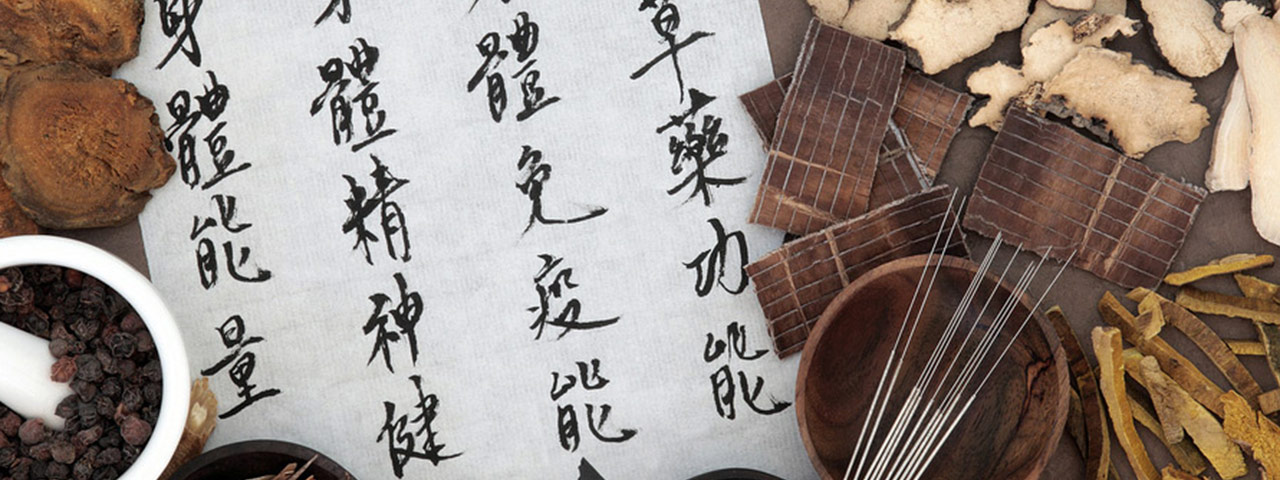 草藥功能
體免疫能
體精神健
身體能量